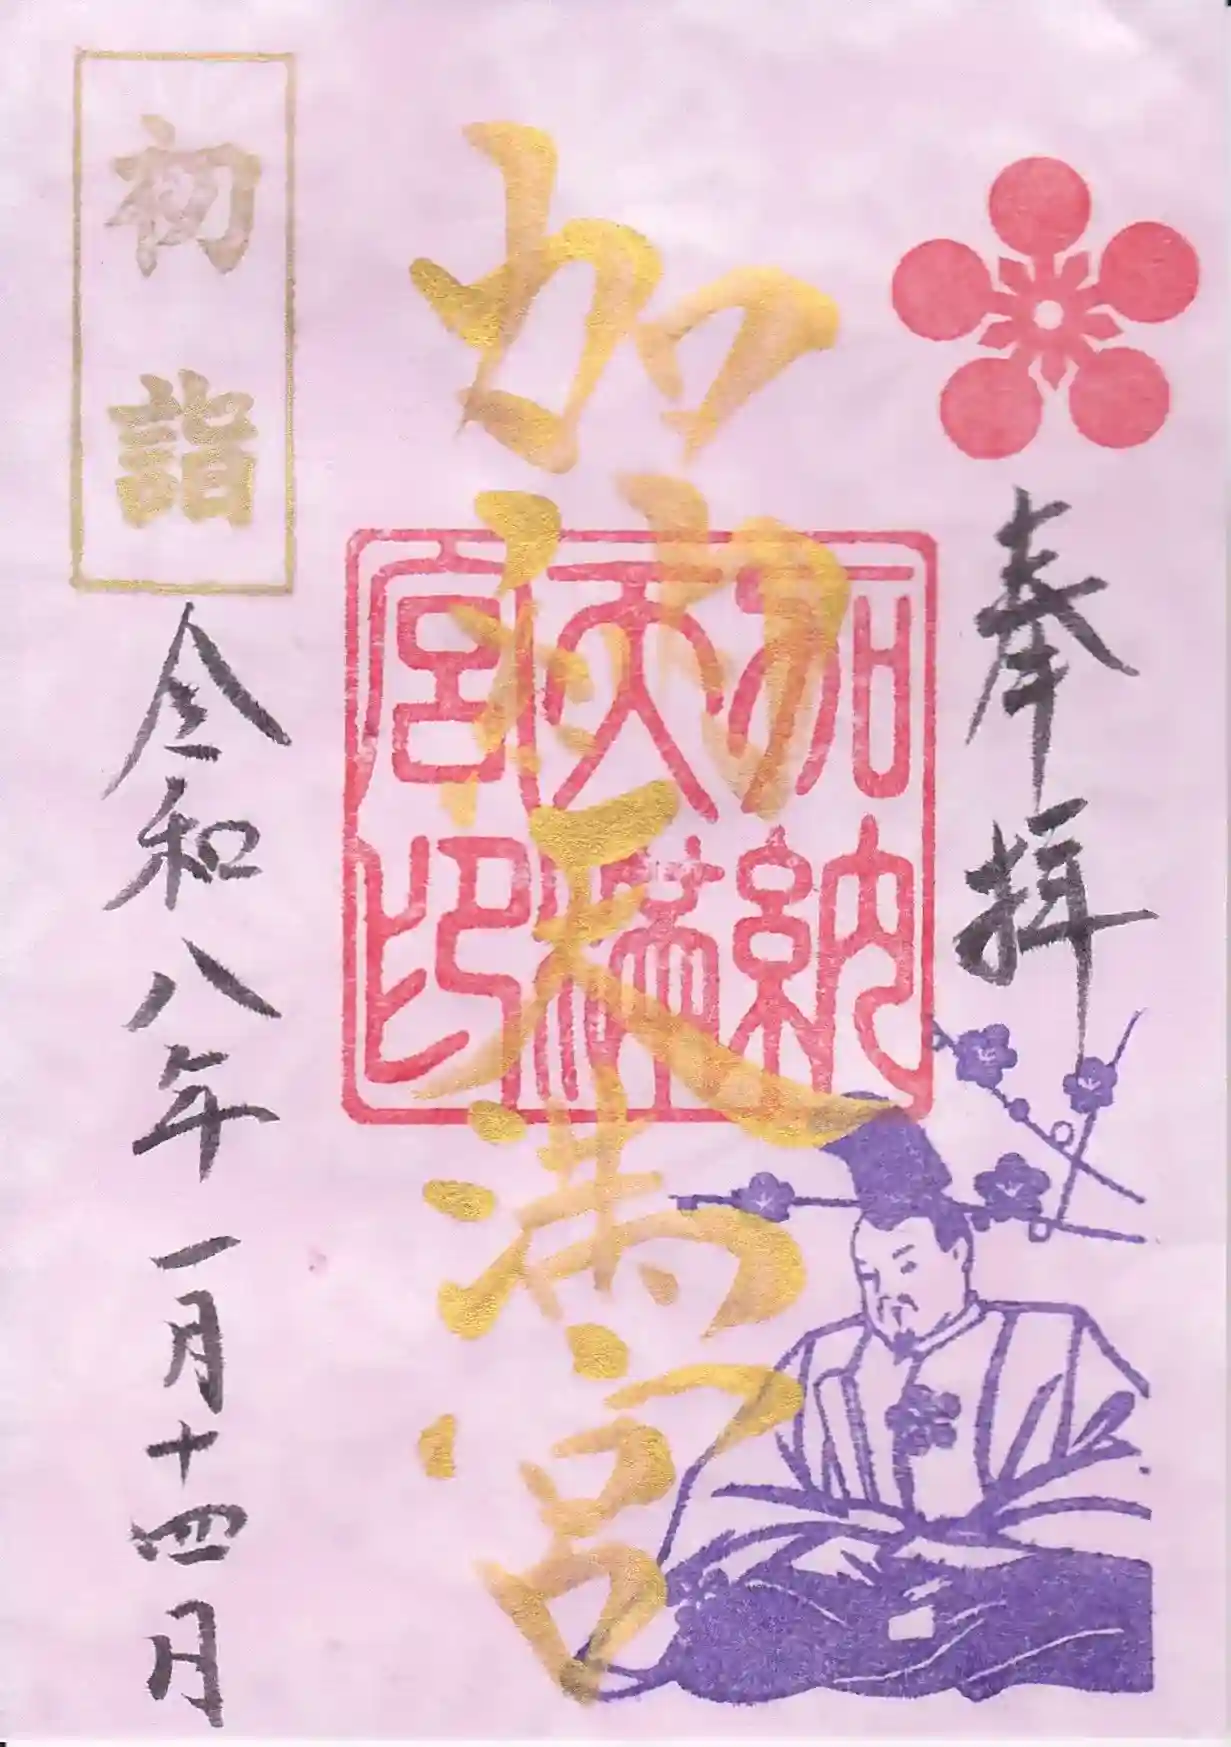 奉拝
加納天満宮
加納
天満
宮印
初詣
令和八年一月十四日